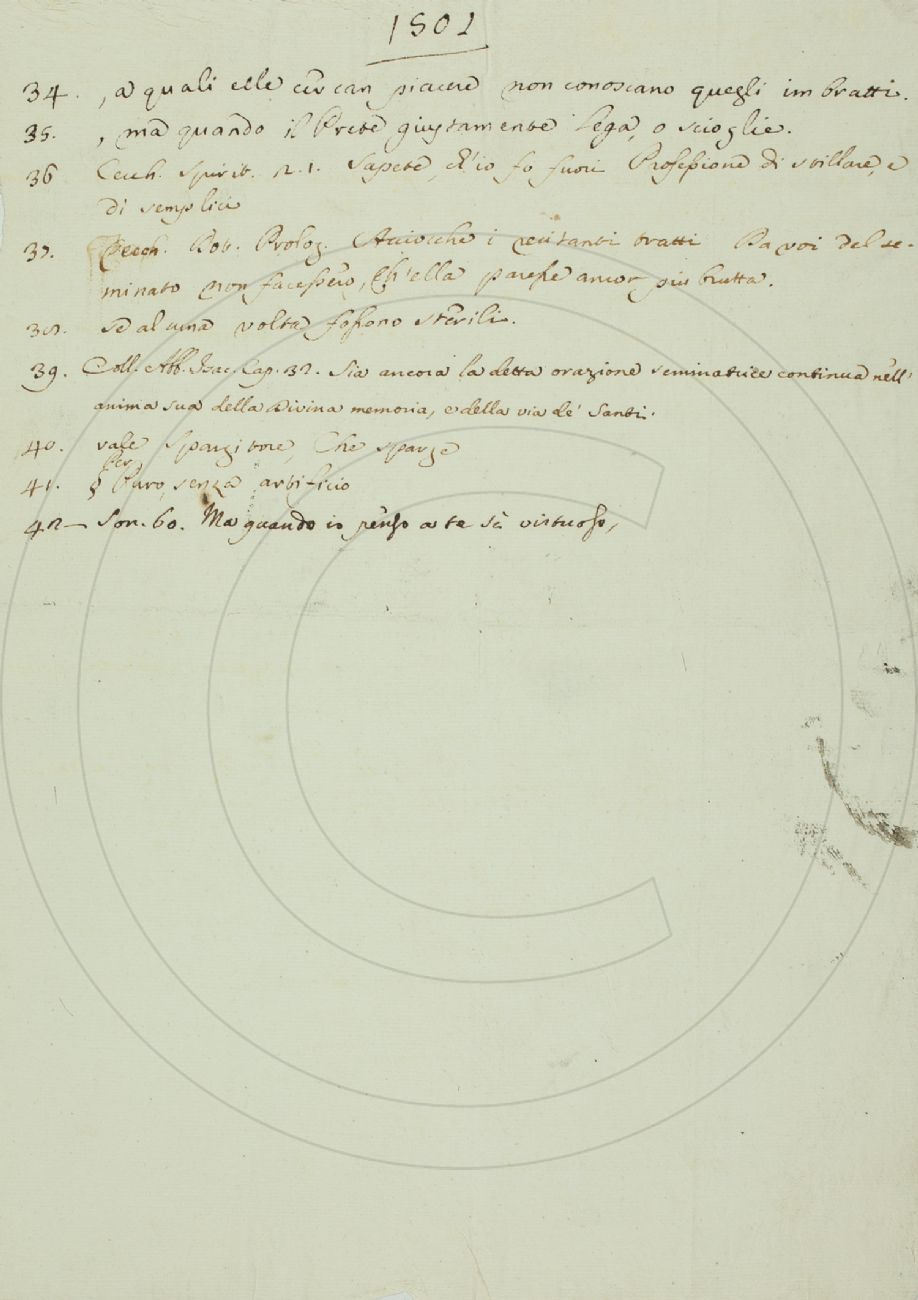 1801
34. , a quali elle cercan piacere non conoscano quegli imbratti.
35. , ma quando il Prete giustamente lega, o scioglie.
36 Cecch. Spirit. 2. 1. Sapete, ch'io fo fuori Professione di stillare, e
di semplici
37. Cecch. Rob. Prolog. Acciocchè i recitanti tratti Da voi del se-
minato non facessero, Ch'ella paresse ancor più brutta.
38. se alcuna volta fossono sterili.
39. Coll. Abb. Isac. Cap. 32. Sia ancora la detta orazione seminatrice continua nell'
anima sua della divina memoria, e della via de' Santi.
40. vale Spargitore, Che sparge
41. Per Puro, senza artificio
42— Son. 60. Ma quando io penso a te sì virtuoso,